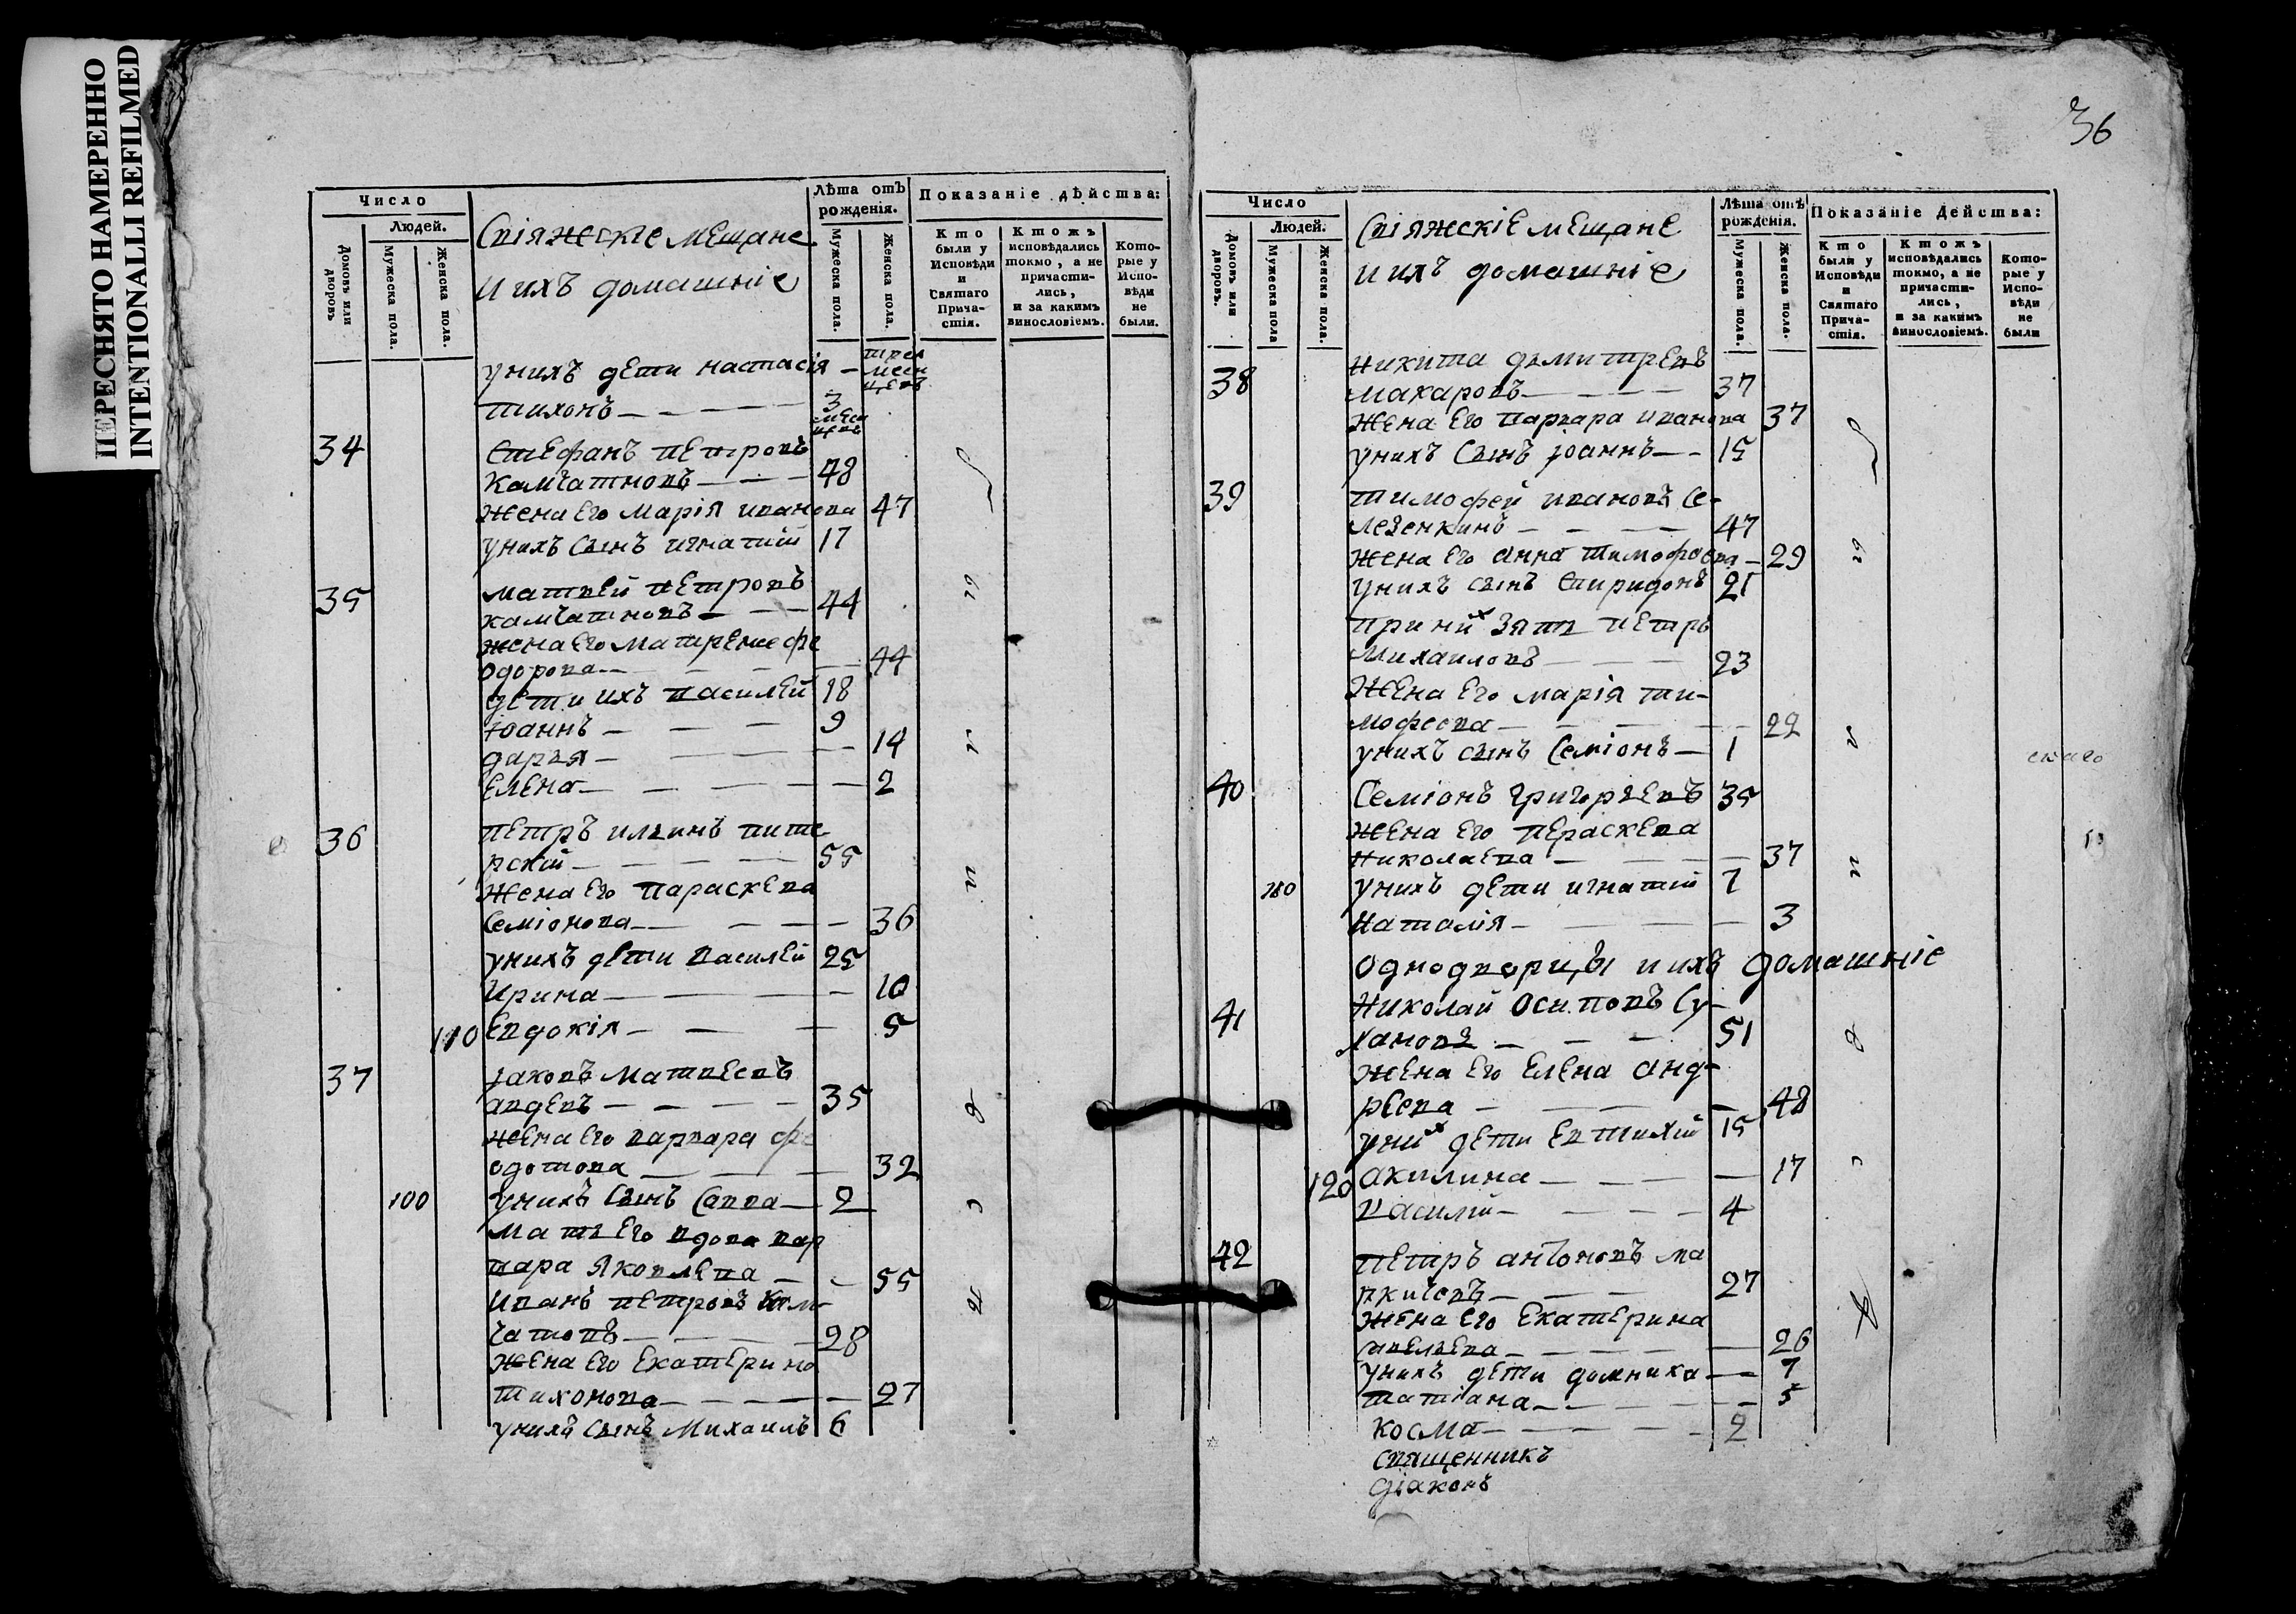 ПЕРЕСНЯТО НАМЕРЕННО
INTENTIONALLI REFILMED
Число
Людей.
Домовъ или дворовъ
Мужеска пола.
Женска пола.
Свіяжскіе мещане
и ихъ домашніе
Лѣта отъ рожденія.
Мужеска пола.
Женска пола.
Показаніе дѣйства:
Кто были у Исповѣди и Святаго Прича-стія.
Ктожъ исповѣдались токмо, а не причасти-лись, и за какимъ винословіемъ.
Кото-рые у Испо-вѣди не были.
унихъ дети настасія —
тихонъ — — — — 3
34 стефанъ петровъ
камчатновъ — — — 48
жена его марія иванова 47
унихъ сынъ игнатій 17
35 матвей петровъ
камчатновъ — — — 44
жена его матрена фе
одорова — — — — 44
дети ихъ василей 18
іоаннъ — — — 9
дарья — — — — 14
елена — — — — 2
36 петръ ильинъ пите
рскій — — — — 55
жена его параскева
семіонова — — — — 36
унихъ дети василей 25
ирина — — — — 10
110 евдокія — — — 5
37 іаковъ матвеевъ
авдевъ — — — — 35
жена его варвара фе
одотова — — — 32
100 унихъ сынъ савва — 2
мать его вдова вар
вара яковлева — — 55
иванъ петровъ кам-
чатовъ — — — — 28
жена его екатерина
тихонова — — — — 27
унихъ сынъ михаилъ 6
36
Число
Людей.
Домовъ или дворовъ.
Мужеска пола
Женска пола.
Свіяжскіе мещане
и ихъ домашніе
Лѣта отъ рожденія.
Мужеска пола.
Женска пола.
Показаніе Действа:
Кто были у Исповѣди и Святаго Прича-стія.
Ктожъ исповѣдались токмо, а не причасти-лись, и за какимъ винословіемъ.
Кото-рые у Испо-вѣди не были
38 никита димитревъ
макаровъ — — — — 37
жена его варвара иванова 37
унихъ сынъ іоаннъ — — 15
39 тимофей ивановъ се-
лезенкинъ — — — — 47
жена его анна тимофеева — 29
унихъ сынъ спиридонъ 21
при них зять петръ
михаиловъ — — — 23
жена его марія ти-
мофеева — — — — 22
унихъ сынъ семіонъ — 1
40 семіонъ григорьевъ 35
жена его пераскева
николаева — — — 37
унихъ дети игнатій 7
наталія — — — 3
однодворцы и ихъ домашніе
41 николай осиповъ су-
хановъ — — — 51
жена его елена анд-
реева — — — — 48
у них дети евтихій 15
120 акилина — — — — 17
василій — — — — 4
42 петръ антоновъ ма
ркичевъ — — — 27
жена его екатерина
— — — — 26
унихъ дети домника — — 7
татіана — — — — 5
косма — — — — 2
священникъ
діаконъ